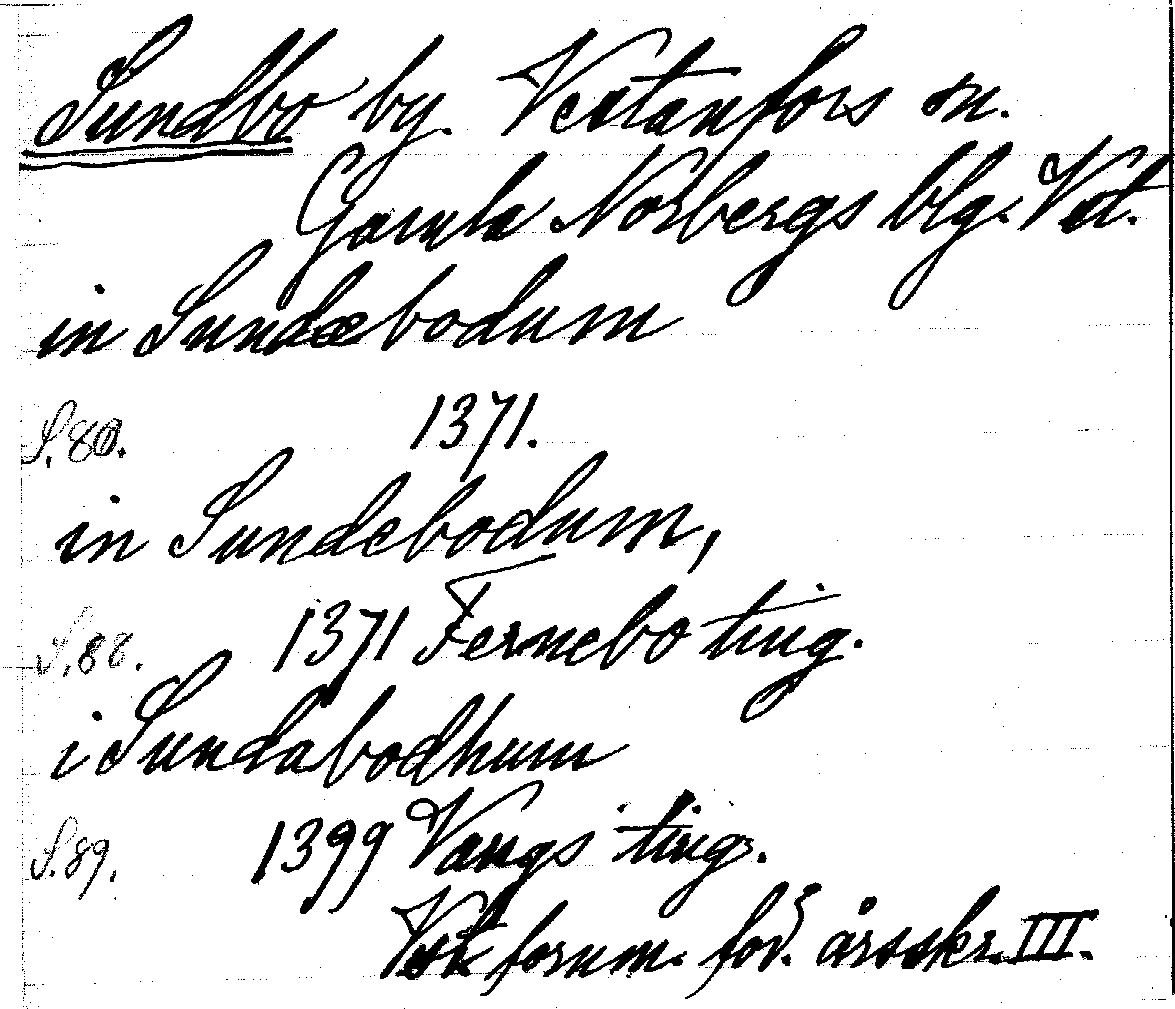 Sundbo by. Vestanfors sn.
Gamla Norbergs blg. Vstl.
in Sundæbodum
S. 80. 1371.
in Sundebodum,
S. 88. 1371 Fernebo ting.
i Sundabodhum
S. 89. 1399 Vangs ting.
Vstl. fornm. för. årsskr. III.